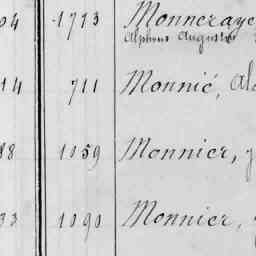 04 1773 Monneraye
Alphonse Auguste
14 711 Monnié, Al
88 1059 Monnier,
33 1090 Monnier,